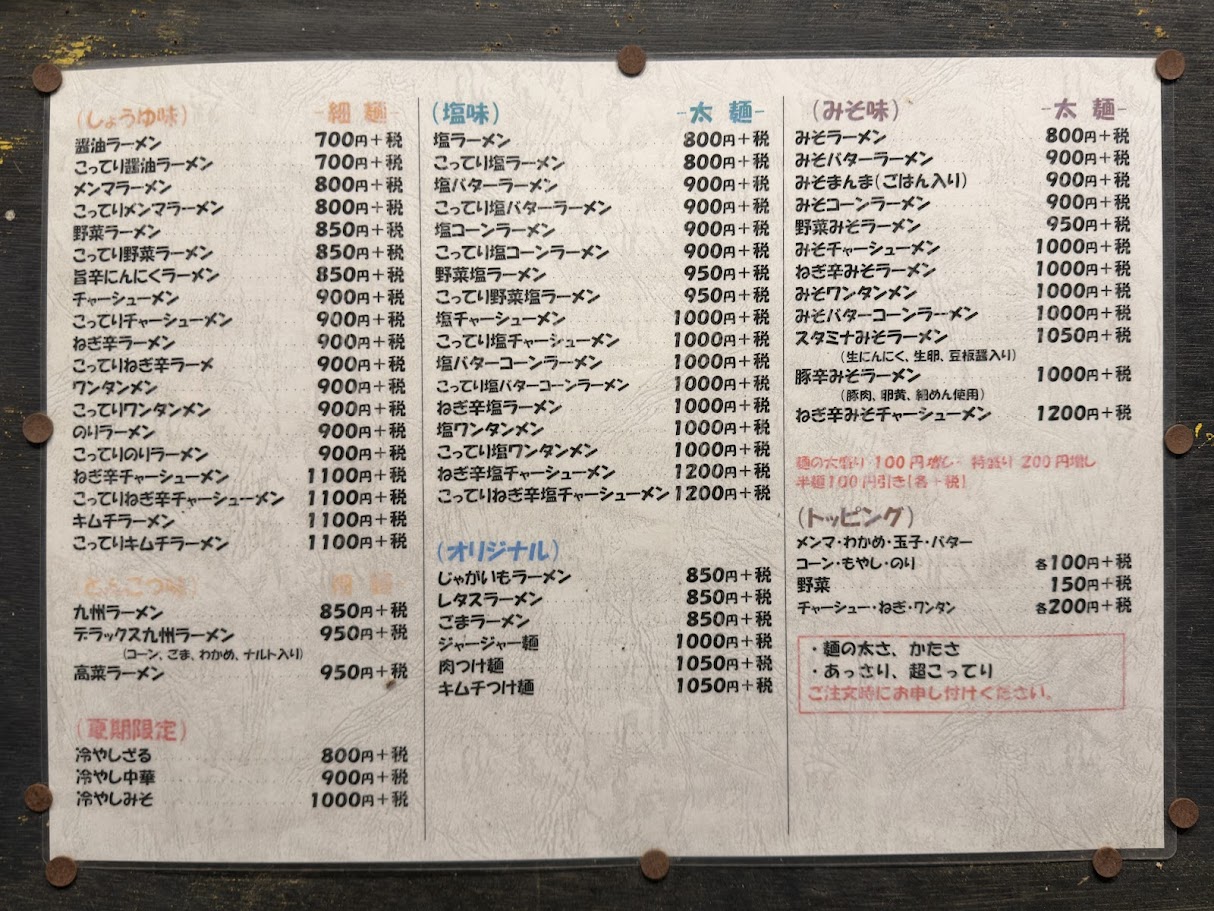 (しょうゆ味) -細 麺-
醤油ラーメン 700円+税
こってり醤油ラーメン 700円+税
メンマラーメン 800円+税
こってりメンマラーメン 800円+税
野菜ラーメン 850円+税
こってり野菜ラーメン 850円+税
旨辛にんにくラーメン 850円+税
チャーシューメン 900円+税
こってりチャーシューメン 900円+税
ねぎ辛ラーメン 900円+税
こってりねぎ辛ラーメ 900円+税
ワンタンメン 900円+税
こってりワンタンメン 900円+税
のりラーメン 900円+税
こってりのりラーメン 900円+税
ねぎ辛チャーシューメン 1100円+税
こってりねぎ辛チャーシューメン 1100円+税
キムチラーメン 1100円+税
こってりキムチラーメン 1100円+税
(とんこつ味) -細 麺-
九州ラーメン 850円+税
デラックス九州ラーメン 950円+税
(コーン、ごま、わかめ、ナルト入り)
高菜ラーメン 950円+税
(夏期限定)
冷やしざる 800円+税
冷やし中華 900円+税
冷やしみそ 1000円+税
(塩味) -太 麺-
塩ラーメン 800円+税
こってり塩ラーメン 800円+税
塩バターラーメン 900円+税
こってり塩バターラーメン 900円+税
塩コーンラーメン 900円+税
こってり塩コーンラーメン 900円+税
野菜塩ラーメン 950円+税
こってり野菜塩ラーメン 950円+税
塩チャーシューメン 1000円+税
こってり塩チャーシューメン 1000円+税
塩バターコーンラーメン 1000円+税
こってり塩バターコーンラーメン 1000円+税
ねぎ辛塩ラーメン 1000円+税
塩ワンタンメン 1000円+税
こってり塩ワンタンメン 1000円+税
ねぎ辛塩チャーシューメン 1200円+税
こってりねぎ辛塩チャーシューメン 1200円+税
(オリジナル)
じゃがいもラーメン 850円+税
レタスラーメン 850円+税
ごまラーメン 850円+税
ジャージャー麺 1000円+税
肉つけ麺 1050円+税
キムチつけ麺 1050円+税
(みそ味) -太 麺-
みそラーメン 800円+税
みそバターラーメン 900円+税
みそまんま(ごはん入り) 900円+税
みそコーンラーメン 900円+税
野菜みそラーメン 950円+税
みそチャーシューメン 1000円+税
ねぎ辛みそラーメン 1000円+税
みそワンタンメン 1000円+税
みそバターコーンラーメン 1000円+税
スタミナみそラーメン 1050円+税
(生にんにく、生卵、豆板醤入り)
豚辛みそラーメン 1000円+税
(豚肉、卵黄、細めん使用)
ねぎ辛みそチャーシューメン 1200円+税
麺の大盛り 100円増し・特盛り 200円増し
半麺100円引き[各+税]
(トッピング)
メンマ・わかめ・玉子・バター
コーン・もやし・のり 各100円+税
野菜 150円+税
チャーシュー・ねぎ・ワンタン 各200円+税
・麺の太さ、かたさ
・あっさり、超こってり
ご注文時にお申し付けください。